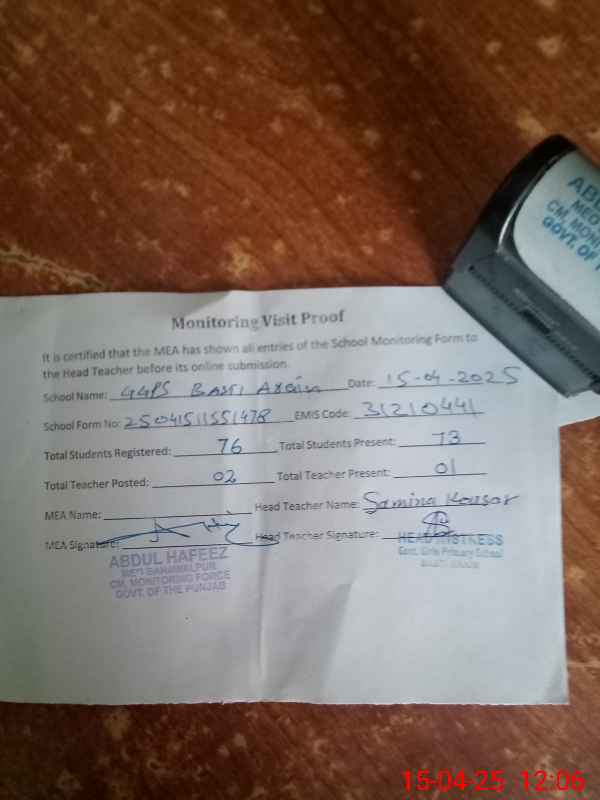 Monitoring Visit Proof
It is certified that the MEA has shown all entries of the School Monitoring Form to
the Head Teacher before its online submission.
School Name: GGPS Basti Arain Date: 15-04-2025
School Form No: 25041511551478 EMIS Code: 31210441
Total Students Registered: 76 Total Students Present: 73
Total Teacher Posted: 02 Total Teacher Present: 01
MEA Name: Head Teacher Name: Samina Kousar
MEA Signature: Head Teacher Signature:
ABDUL HAFEEZ
MEA BAHAWALPUR
CM, MONITORING FORCE
GOVT. OF THE PUNJAB
HEADMISTRESS
Govt. Girls Primary School
BASTI ARAIN
CM, MONI
GOVT. OF
15-04-25 12:06